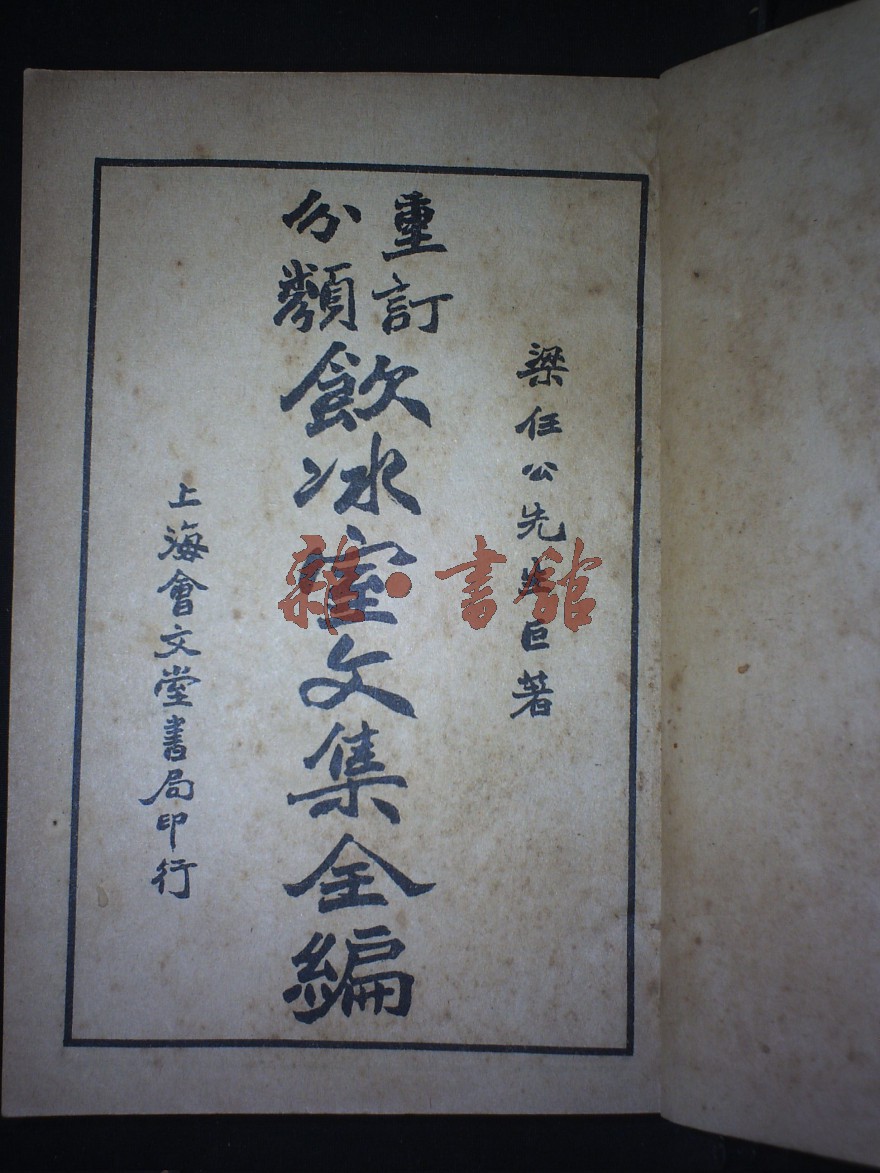 梁任公先生巨著
重訂
分類
飲冰室文集全編
上海會文堂書局印行
雜·書館